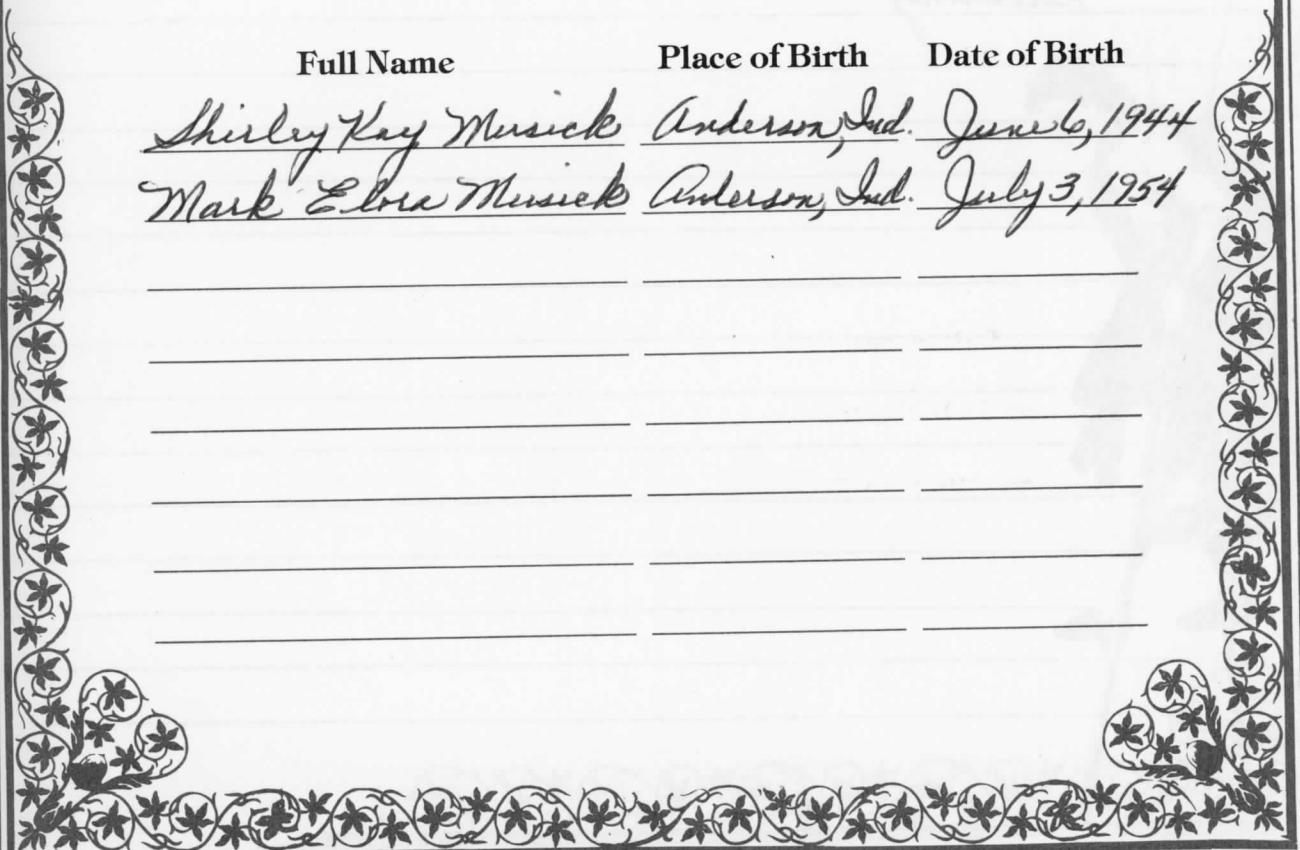 Full Name Place of Birth Date of Birth
Shirley Kay Musick Anderson, Ind. June 6, 1944
Mark Elvra Musick Anderson, Ind. July 3, 1954